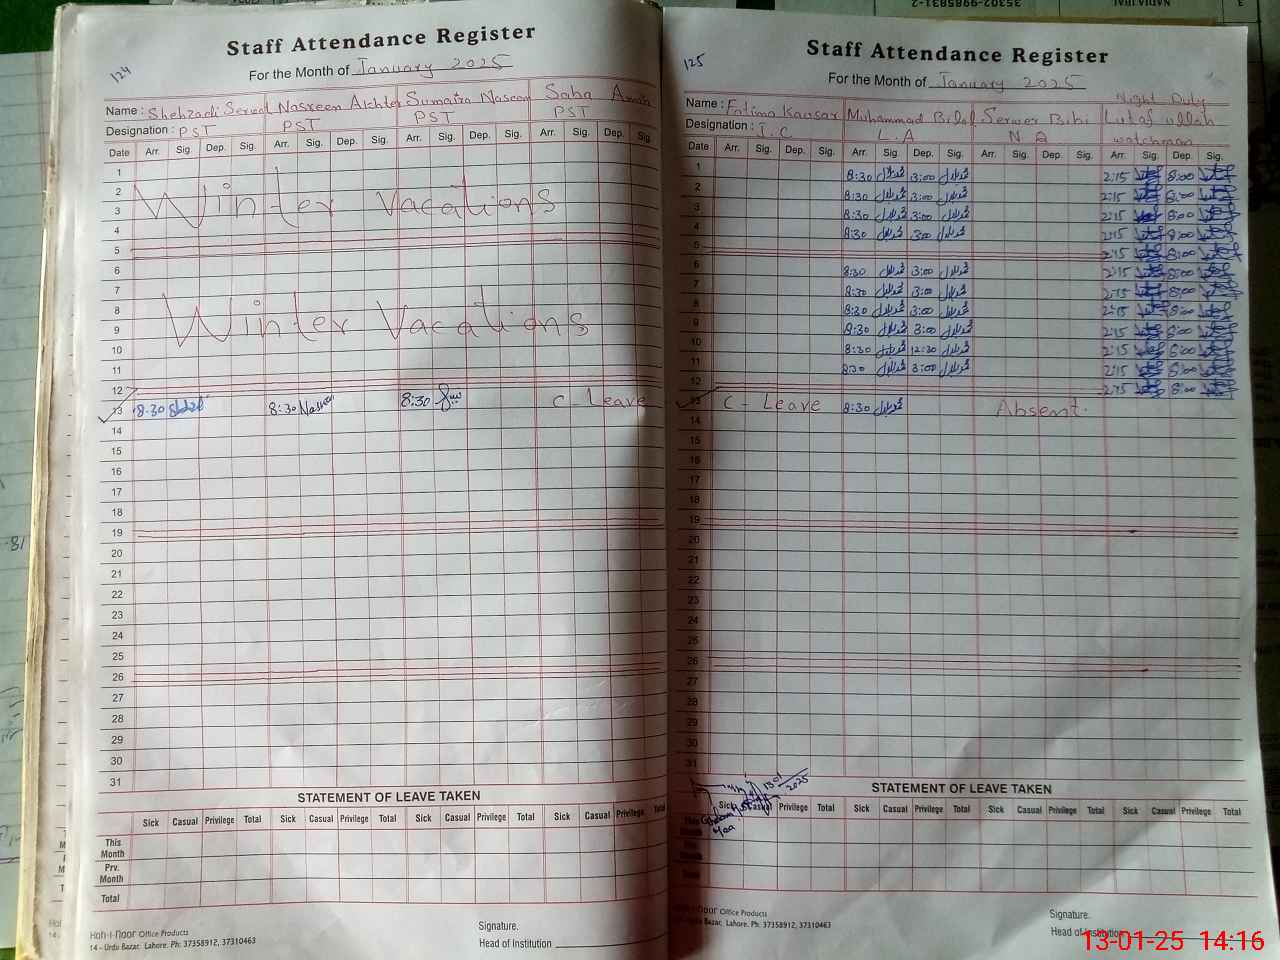 35302-9985831-2
NADIA IQBAL
3
124
Staff Attendance Register
For the Month of January 2025
Name : Shehzadi Serwat Nasreen Akhter Sumaira Naseem Saba Amah
Designation : PST PST PST PST
Date Arr. Sig. Dep. Sig. Arr. Sig. Dep. Sig. Arr. Sig. Dep. Sig. Arr. Sig. Dep. Sig.
1
2
3
4
Winter Vacations
5
6
7
8
9
Winter Vacations
10
11
12
13 8:30 8:30 Nasreen 8:30 C Leave
14
15
16
17
18
19
20
21
22
23
24
25
26
27
28
29
30
31
STATEMENT OF LEAVE TAKEN
Sick Casual Privilege Total Sick Casual Privilege Total Sick Casual Privilege Total Sick Casual Privilege Total
This Month
Prv. Month
Total
Koh-i-Noor Office Products
14 - Urdu Bazar, Lahore. Ph: 37358912, 37310463
Signature.
Head of Institution
125
Staff Attendance Register
For the Month of January 2025
Night Duty
Name : Fatima Kausar Muhammad Bilal Serwer Bibi Lutaf ullah
Designation : I.C L.A N.A watchman
Date Arr. Sig. Dep. Sig. Arr. Sig. Dep. Sig. Arr. Sig. Dep. Sig. Arr. Sig. Dep. Sig.
1 8:30 محمد بلال 3:00 محمد بلال 2:15 8:00
2 8:30 محمد بلال 3:00 محمد بلال 2:15 8:00
3 8:30 محمد بلال 3:00 محمد بلال 2:15 8:00
4 8:30 محمد بلال 3:00 محمد بلال 2:15 8:00
5 2:15 8:00
6 8:30 محمد بلال 3:00 محمد بلال 2:15 8:00
7 8:30 محمد بلال 3:00 محمد بلال 2:15 8:00
8 8:30 محمد بلال 3:00 محمد بلال 2:15 8:00
9 8:30 محمد بلال 3:00 محمد بلال 2:15 8:00
10 8:30 محمد بلال 12:30 محمد بلال 2:15 8:00
11 8:30 محمد بلال 3:00 محمد بلال 2:15 8:00
12 2:15 8:00
13 C - Leave 8:30 محمد بلال Absent.
14
15
16
17
18
19
20
21
22
23
24
25
26
27
28
29
30
31
13-01-2025
STATEMENT OF LEAVE TAKEN
Sick Casual Privilege Total Sick Casual Privilege Total Sick Casual Privilege Total Sick Casual Privilege Total
Koh-i-Noor Office Products
14 - Urdu Bazar, Lahore. Ph: 37358912, 37310463
Signature.
Head of Institution
13-01-25 14:16